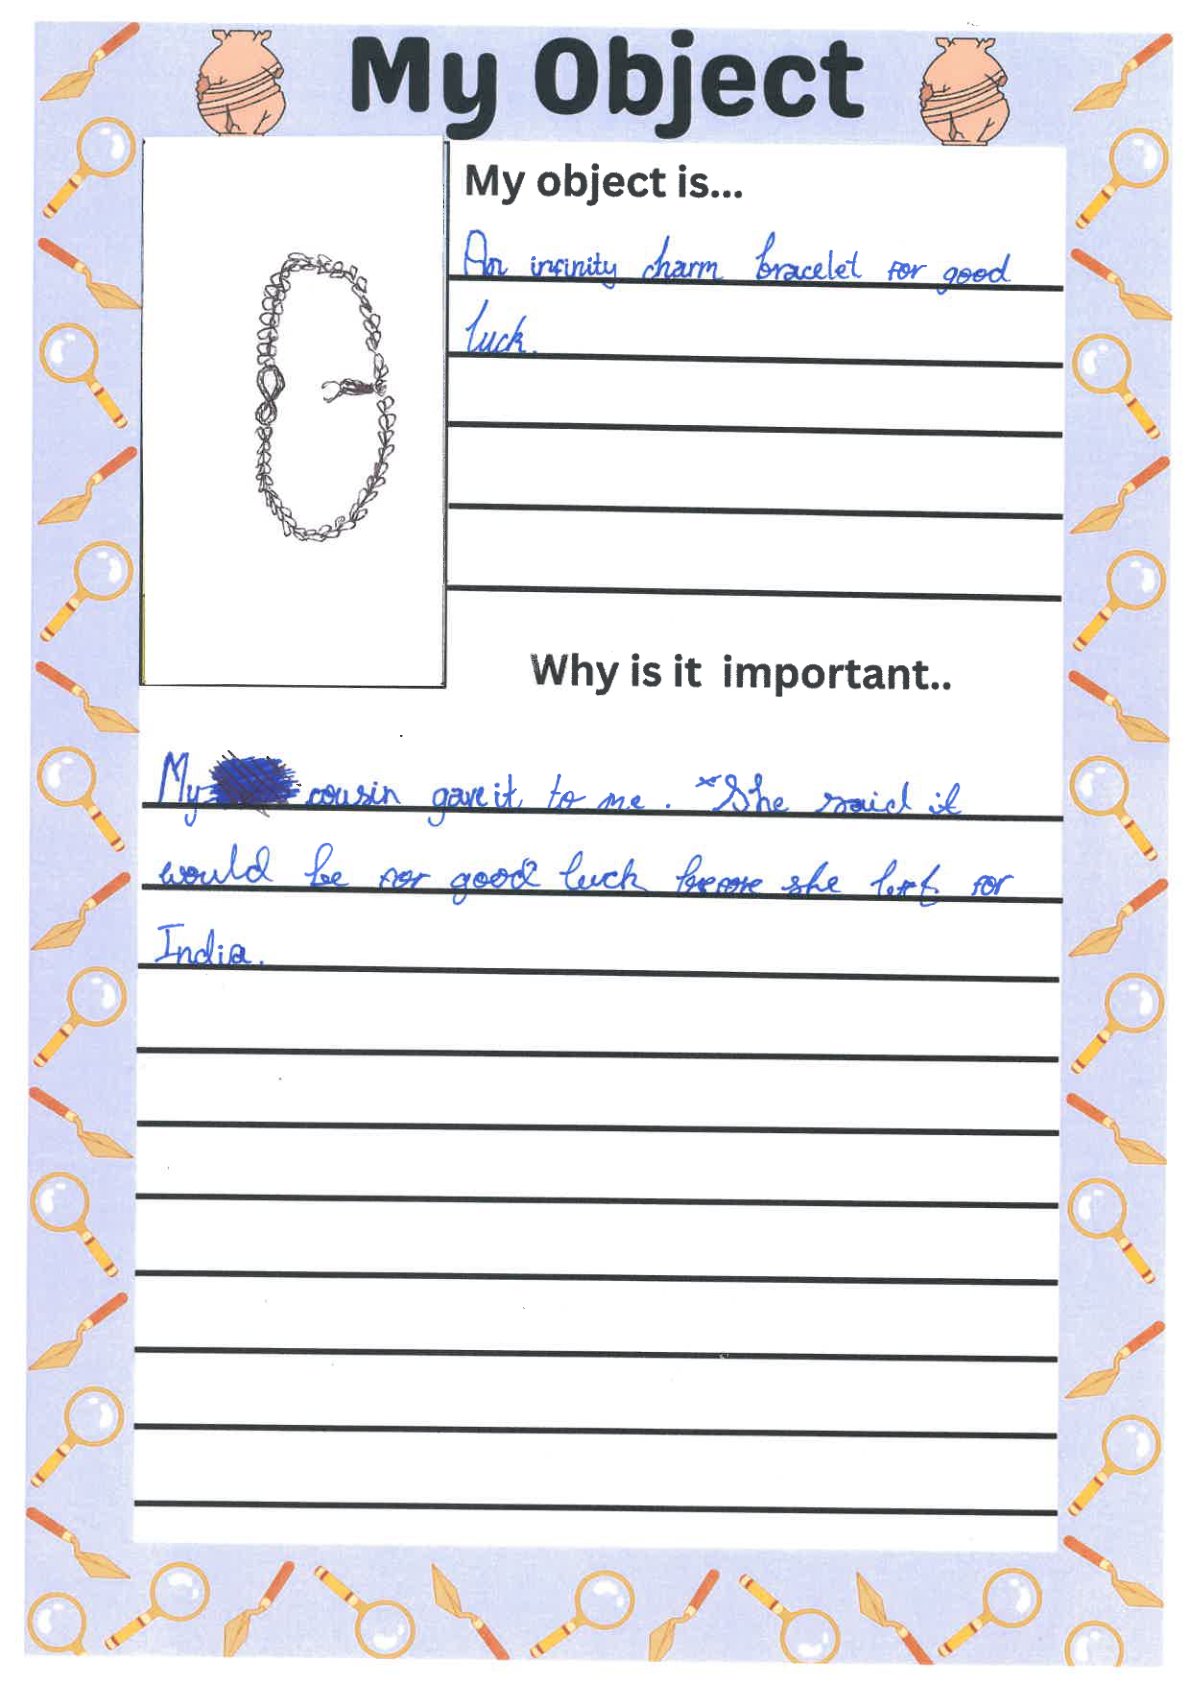 My Object
My object is...
An infinity charm bracelet for good
luck.
Why is it important..
My cousin gave it to me. *She said it
would be for good luck before she left for
India.